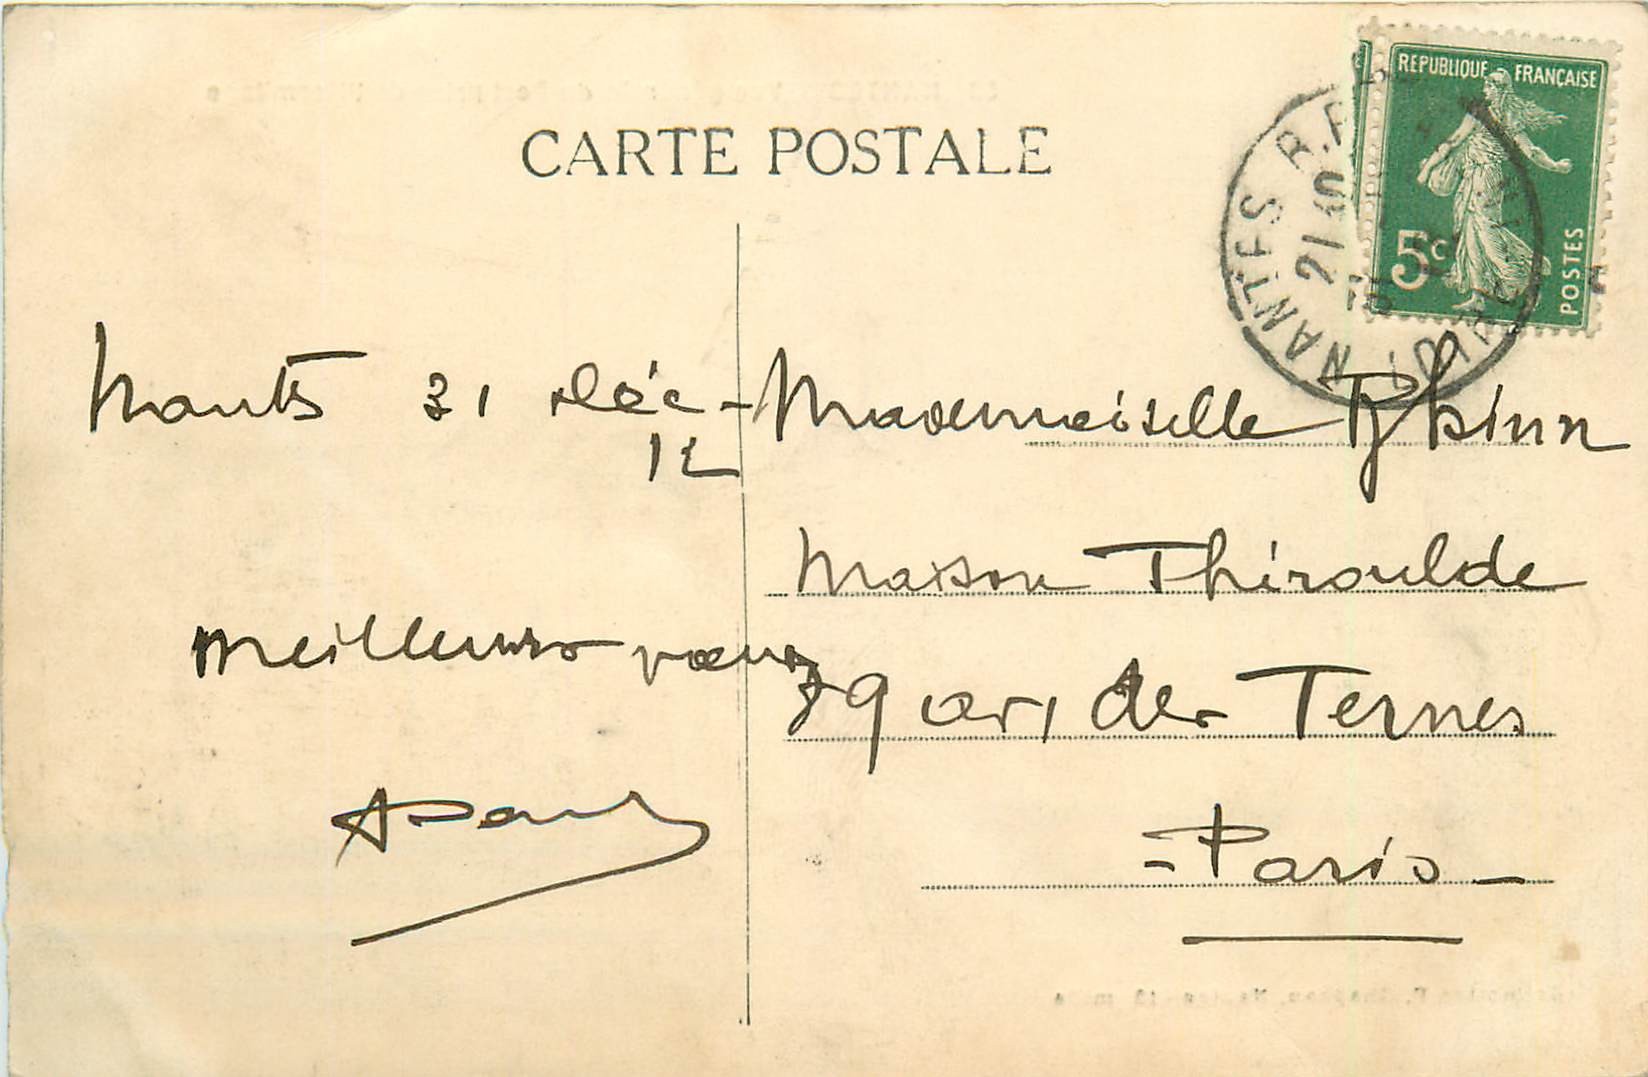 CARTE POSTALE
REPUBLIQUE FRANÇAISE
5c
POSTES
NANTES R.P.
21 40
Nantes 31 Déc -
12
Meilleurs vœux
Mademoiselle
Maison Thiroulde
39 av. des Ternes
- Paris -